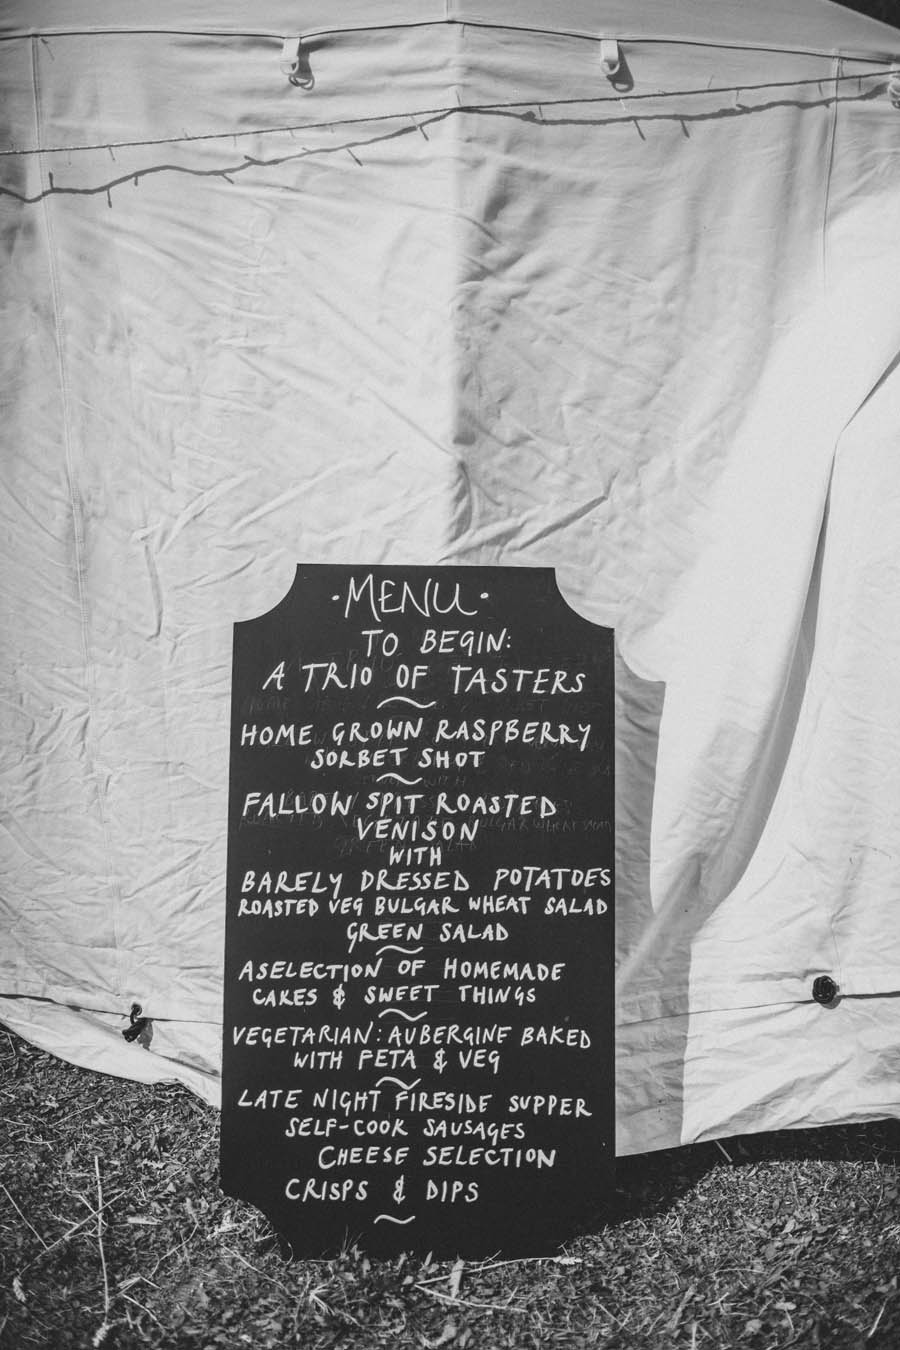 ·MENU·
TO BEGIN:
A TRIO OF TASTERS
~
HOME GROWN RASPBERRY
SORBET SHOT
~
FALLOW SPIT ROASTED
VENISON
WITH
BARELY DRESSED POTATOES
ROASTED VEG BULGAR WHEAT SALAD
GREEN SALAD
~
A SELECTION OF HOMEMADE
CAKES & SWEET THINGS
~
VEGETARIAN: AUBERGINE BAKED
WITH FETA & VEG
~
LATE NIGHT FIRESIDE SUPPER
SELF-COOK SAUSAGES
CHEESE SELECTION
CRISPS & DIPS
~